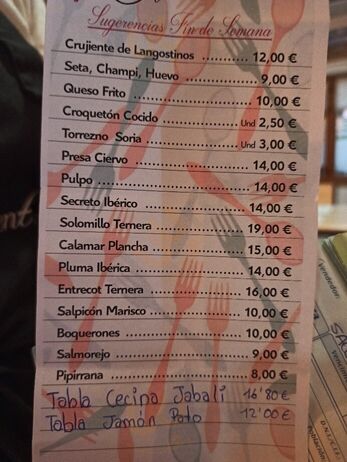 Sugerencias Fin de Semana
Crujiente de Langostinos ............... 12,00 €
Seta, Champi, Huevo ............... 9,00 €
Queso Frito ............... 10,00 €
Croquetón Cocido ............... Und 2,50 €
Torrezno Soria ............... Und 3,00 €
Presa Ciervo ............... 14,00 €
Pulpo ............... 14,00 €
Secreto Ibérico ............... 14,00 €
Solomillo Ternera ............... 19,00 €
Calamar Plancha ............... 15,00 €
Pluma Ibérica ............... 14,00 €
Entrecot Ternera ............... 16,00 €
Salpicón Marisco ............... 10,00 €
Boquerones ............... 10,00 €
Salmorejo ............... 9,00 €
Pipirrana ............... 8,00 €
Tabla Cecina Jabalí 16'80 €
Tabla Jamón Pato 12'00 €
Vendedor: